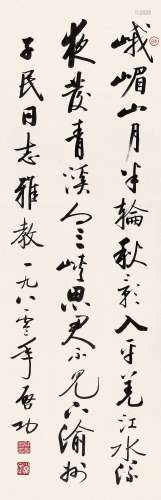 峨嵋山月半轮秋影入平羌江水流
夜发青溪向三峡思君不见下渝州
子民同志雅教 一九八零年 启功